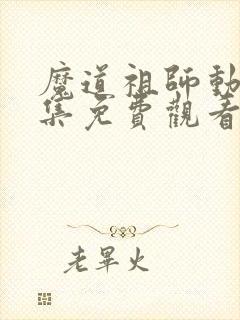 魔道祖師動
集免費觀看
老畢火